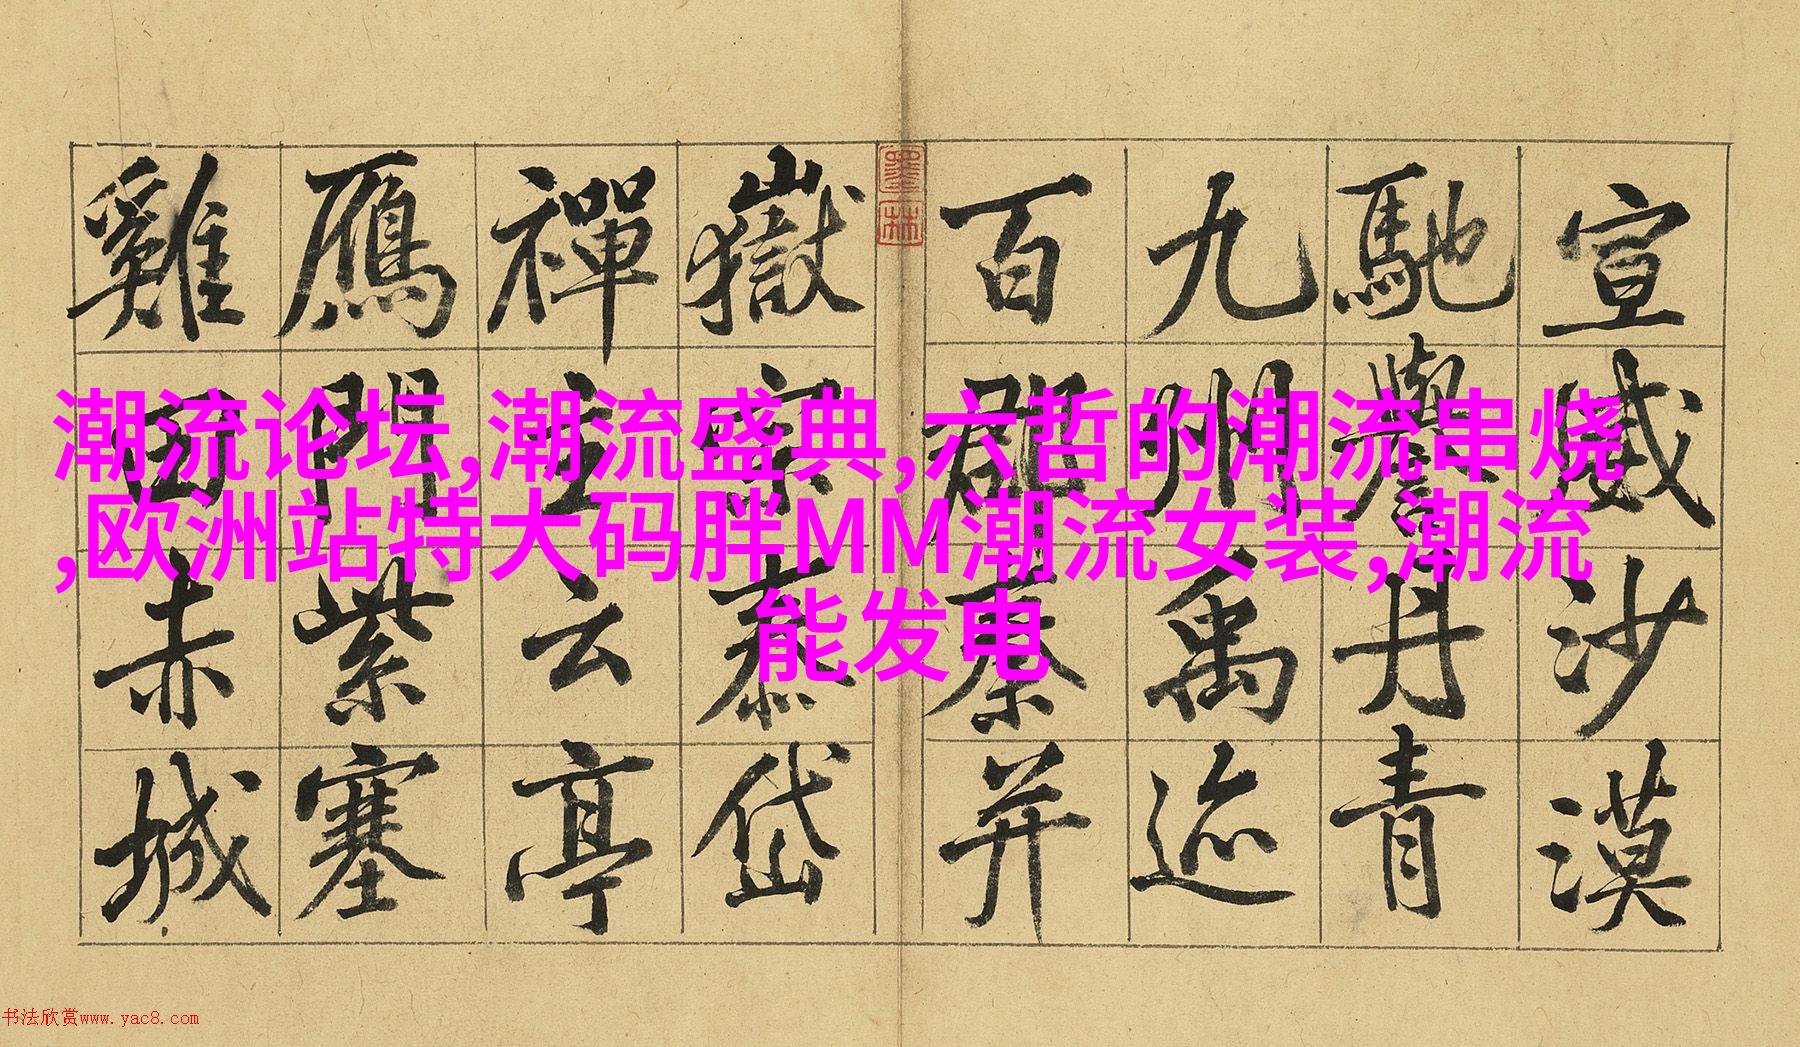 宣威沙漠
馳譽丹青
九州禹迹
百郡秦并
墨林
嶽宗泰岱
禪主云亭
鴈門紫塞
雞田赤城
潮流论坛,潮流盛典,六哲的潮流串烧
,欧洲站特大码胖MM潮流女装,潮流
能发电
书法欣赏www.yac8.com